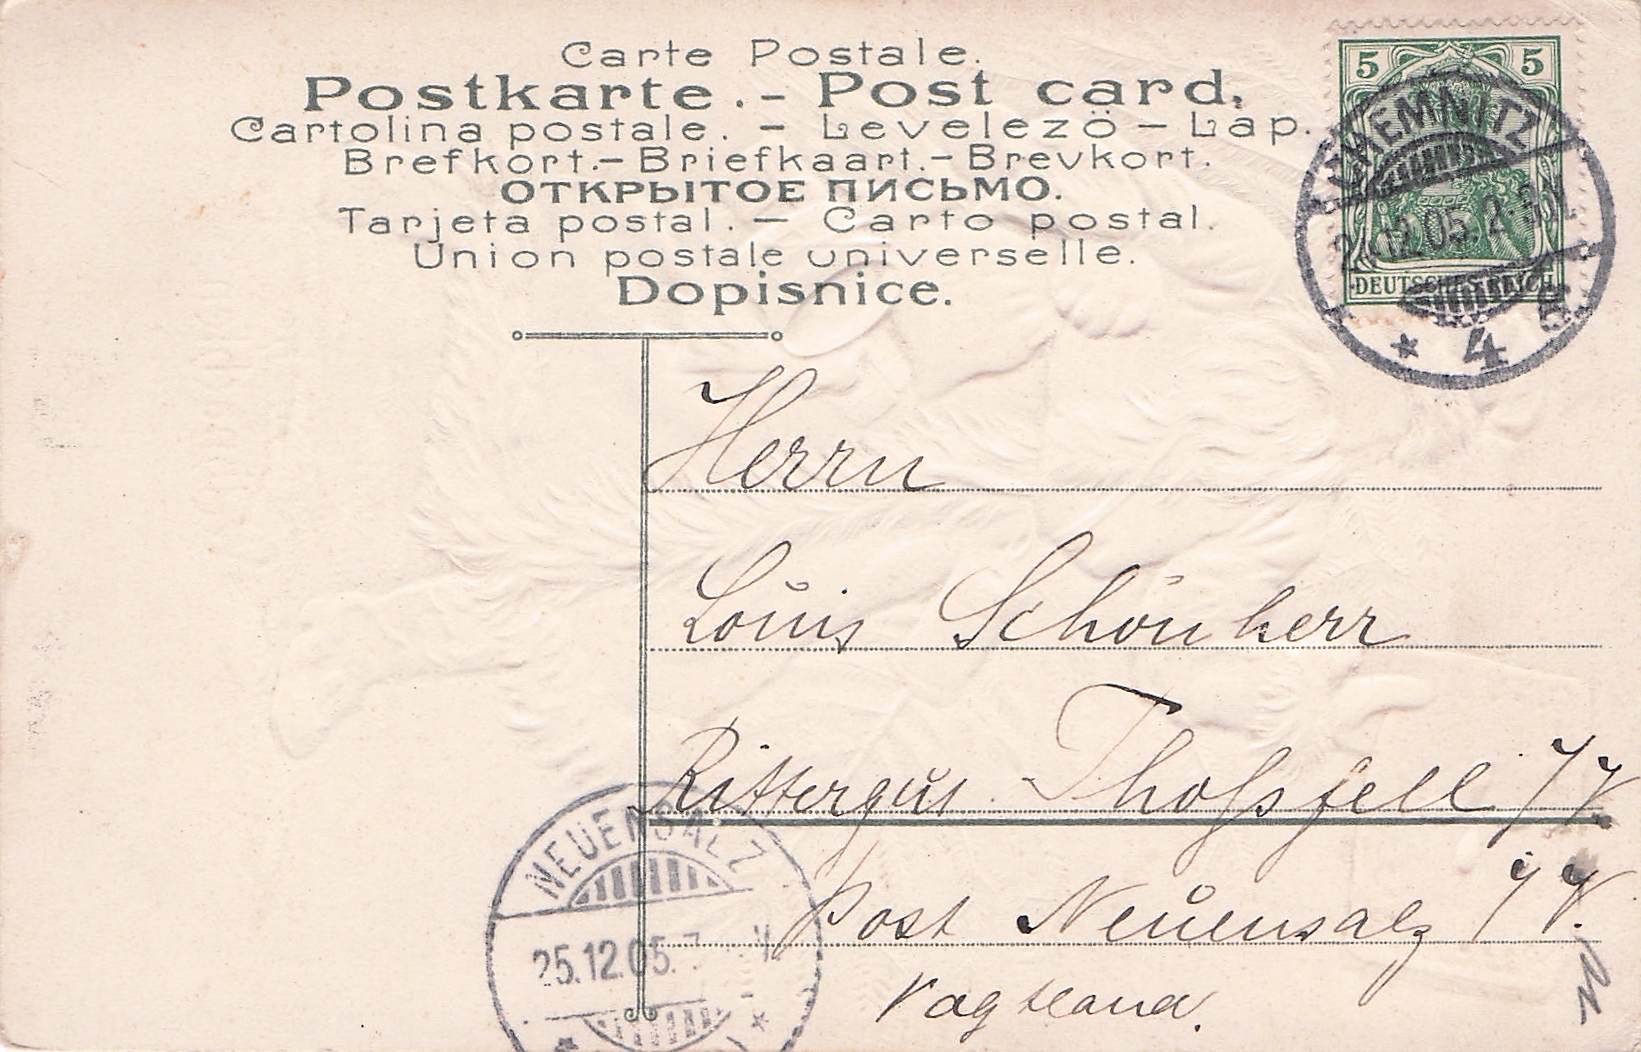 Carte Postale.
Postkarte.- Post card,
Cartolina postale. - Levelezö-Lap.
Brefkort.- Briefkaart.- Brevkort.
ОТКРЫТОЕ ПИСЬМО.
Tarjeta postal. - Carto postal.
Union postale universelle.
Dopisnice.
5 5
DEUTSCHES REICH
CHEMNITZ
12.05.2
* 4
Herrn
Louis Schönherr
Rittergut Thoßfell i/V
Post Neuensalz i/V.
Vogtland.
NEUENSALZ
25.12.05.